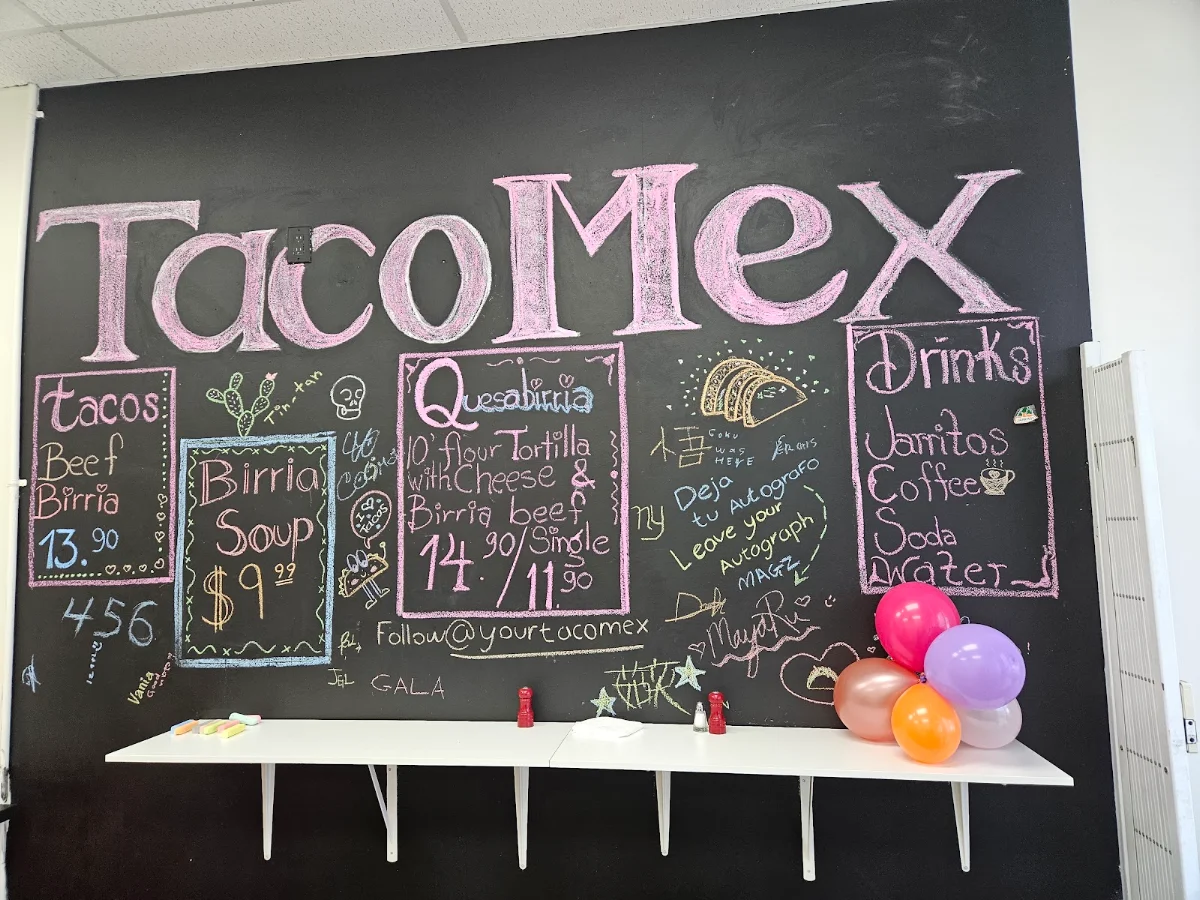 TacoMex
tacos
Beef
Birria
13.90
456
Vania
Tin-tan
Birria
Soup
$9.99
I ♡
TACOS
Quesabirria
10" flour Tortilla
with Cheese &
Birria beef
14.90/Single
11.90
Follow@yourtacomex
JEL
GALA
悟
GOKU
WAS
HERE
NY
Deja
tu Autografo
Leave your
Autograph
MAGZ
MayaRu
Drinks
Jarritos
Coffee
Soda
Water